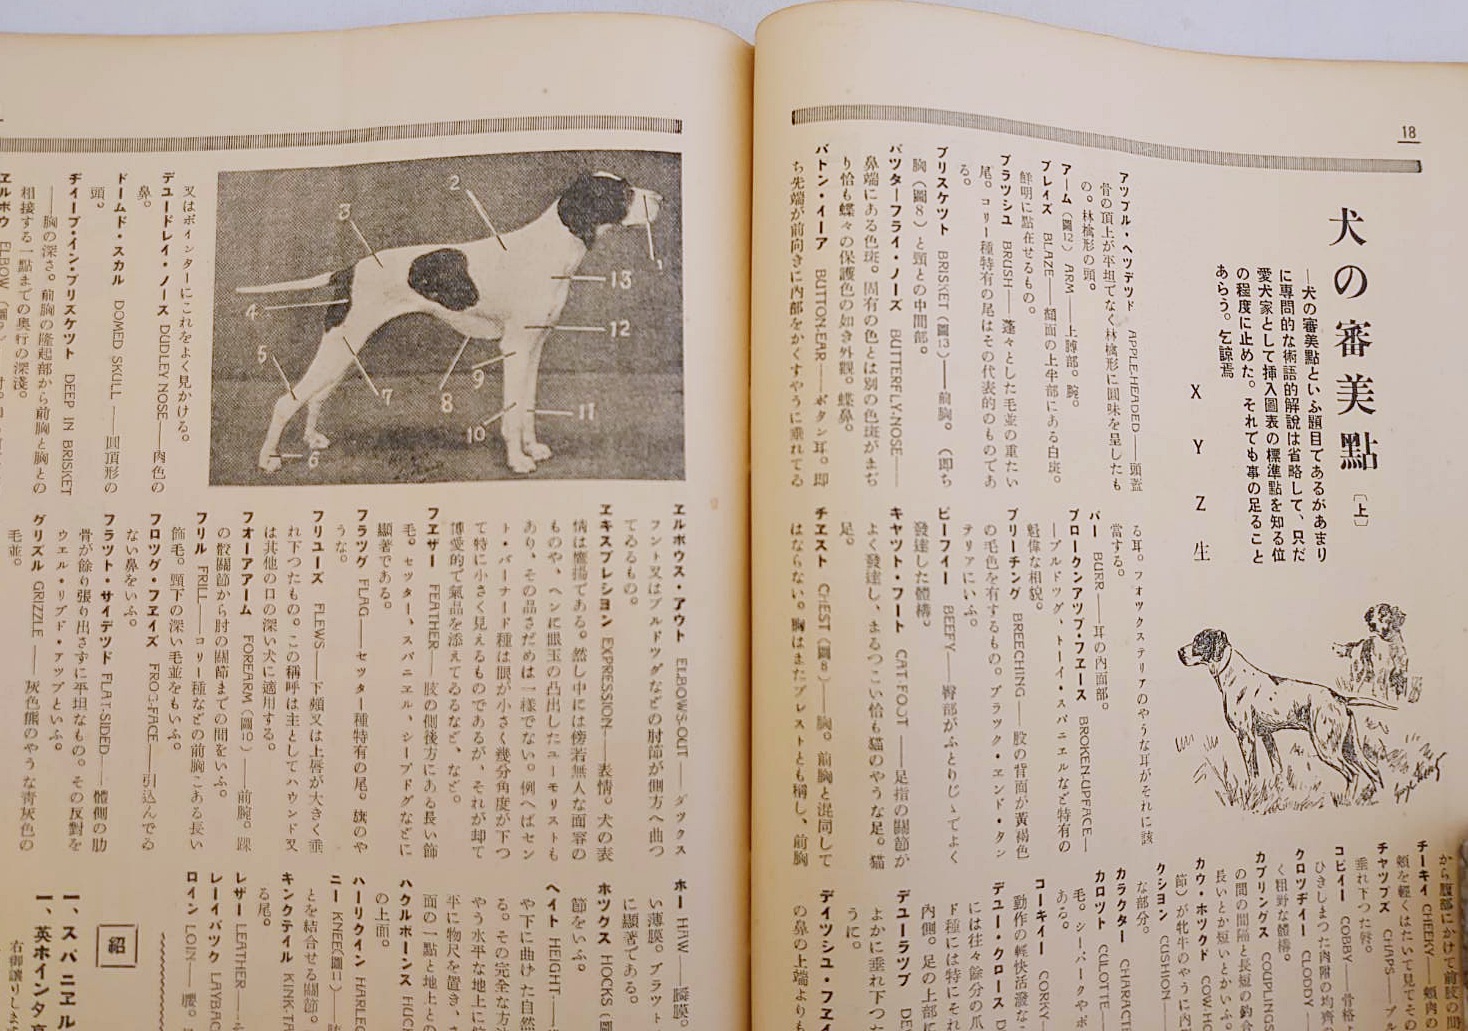 18
犬の審美點
〔上〕
―犬の審美點といふ題目であるがあまり
に專問的な術語的解說は省略して、只だ
愛犬家として揷入圖表の標準點を知る位
の程度に止めた。それでも事の足ること
あらう。乞諒焉
X Y Z 生
アツプル・ヘツデツド APPLE-HEADED――頭蓋
骨の頂上が平坦でなく林檎形に圓味を呈したも
の。林檎形の頭。
アーム(圖12) ARM――上膊部。腕。
ブレイズ BLAZE――顏面の上半部にある白斑。
鮮明に點在せるもの。
ブラツシユ BRUSH――蓬々とした毛並の重たい
尾。コリー種特有の尾はその代表的のものであ
る。
ブリスケツト BRISKET(圖13)――前胸。(卽ち
胸(圖8)と頸との中間部。
バツターフライ・ノーズ BUTTERFLY-NOSE――
鼻端にある色斑。固有の色とは別の色斑がまぢ
り恰も蝶々の保護色の如き外觀。蝶鼻。
バトン・イーア BUTTON-EAR――ボタン耳。卽
ち先端が前向きに內部をかくすやうに垂れてる
る耳。フオツクステリアのやうな耳がそれに該
當する。
バー BURR――耳の內面部。
ブロークンアツプ・フエース BROKEN-UPFACE―
―ブルドツグ、トーイ・スパニエルなど特有の
魁偉な相貌。
ブリーチング BREECHING――股の背面が黃褐色
の毛色を有するもの。ブラツク・エンド・タン
テリアにいふ。
ビーフイー BEEFY――臀部がふとりじゝてよく
發達した體構。
キヤツト・フート CAT FOOT――足指の關節が
よく發達し、まるつこい恰も猫のやうな足。猫
足。
チエスト CHEST(圖8)――胸。前胸と混同して
はならない。胸はまたブレストとも稱し、前胸
から腹部にかけて前肢の間
チーキイ CHEEKY――頰肉の
頰を輕くはたいて見てその
チヤツプス CHAPS――ブ
垂れ下つた脣。
コビイー COBBY――骨格
ひきしまつた肉附の均齊
クロツヂイー CLODDY
く粗野な體構。
カプリングス COUPLING
の間の間隔と長短の釣合
長いとか短いとかいふ。
カウ・ホツクド COW-HO
節)が牝牛のやうに內
クシヨン CUSHION
な部分。
カラクター CHARACTE
カロツト CULOTTE――
毛。シーパークやポ
ある。
コーキイー CORKY
動作の輕快活潑な
デユー・クロース D
には往々餘分の爪
ド種には特にそれ
內側。足の上部に
デユーラツプ DE
よかに垂れ下つた
うに。
デイツシユ・フエイ
の鼻の上端よりも
又はポインターにこれをよく見かける。
デユードレイ・ノース DUDLEY NOSE――肉色の
鼻。
ドームド・スカル DOMED SKULL――圓頂形の
頭。
デイープ・イン・ブリスケツト DEEP IN BRISKET
――胸の深さ。前胸の隆起部から前胸と胸との
相接する一點までの奧行の深淺。
エルボウ ELBOW
1
2
3
4
5
6
7
8
9
10
11
12
13
エルボウス・アウト ELBOWS-OUT――ダツクス
フント又はブルドツグなどの肘節が側方へ曲つ
てゐるもの。
エキスプレシヨン EXPRESSION――表情。犬の表
情は鷹揚である。然し中には傍若無人な面容の
ものや、ヘンに眼玉の凸出したユーモリストも
あり、その品さだめは一樣でない。例へばセン
ト・バーナード種は眼が小さく幾分角度が下つ
て特に小さく見えるものであるが、それが却て
博愛的で氣品を添えてゐるなど、など。
フエザー FEATHER――肢の側後方にある長い飾
毛。セツター、スパニエル、シープドグなどに
顯著である。
フラツグ FLAG――セツター種特有の尾。旗のや
うな。
フリユーズ FLEWS――下頰又は上脣が大きく垂
れ下つたもの。この稱呼は主としてハウンド又
は其他の口の深い犬に適用する。
フオーアアーム FOREARM(圖10)――前腕。踝
の骹關節から肘の關節までの間をいふ。
フリル FRILL――コリー種などの前胸にある長い
飾毛。頸下の深い毛並をもいふ。
フロツグ・フエイズ FROG-FACE――引込んでゐ
ない鼻をいふ。
フラツト・サイデツド FLAT-SIDED――體側の肋
骨が餘り張り出さずに平坦なもの。その反對を
ウエル・リブド・アツプといふ。
グリズル GRIZZLE――灰色熊のやうな靑灰色の
毛並。
ホー HAW――瞬膜。
い薄膜。ブラツト・
に顯著である。
ホツクス HOCKS(圖
節をいふ。
ヘイト HEIGHT――
や下に曲けた自然
る。その完全な方
やう水平な地上に
平に物尺を置き、
面の一點と地上との
ハクルボーンス HUCK
の上面。
ハーリクイン HARLEQ
ニー KNEE(圖1)――
とを結合せる關節。
キンクテイル KINK-TA
る尾。
レザー LEATHER――
レーイバツク LAYBAC
ロイン LOIN――腰。
紹
一、スパニエル
一、英ホインタ
右御讓りします